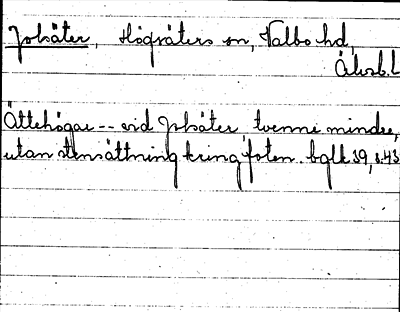 Jolsäter, Högsäters sn, Valbo hd,
Älvsb. l
Ättehögar -- vid Jolsäter tvenne mindre,
utan stensättning kring foten. bglk 39, s. 43